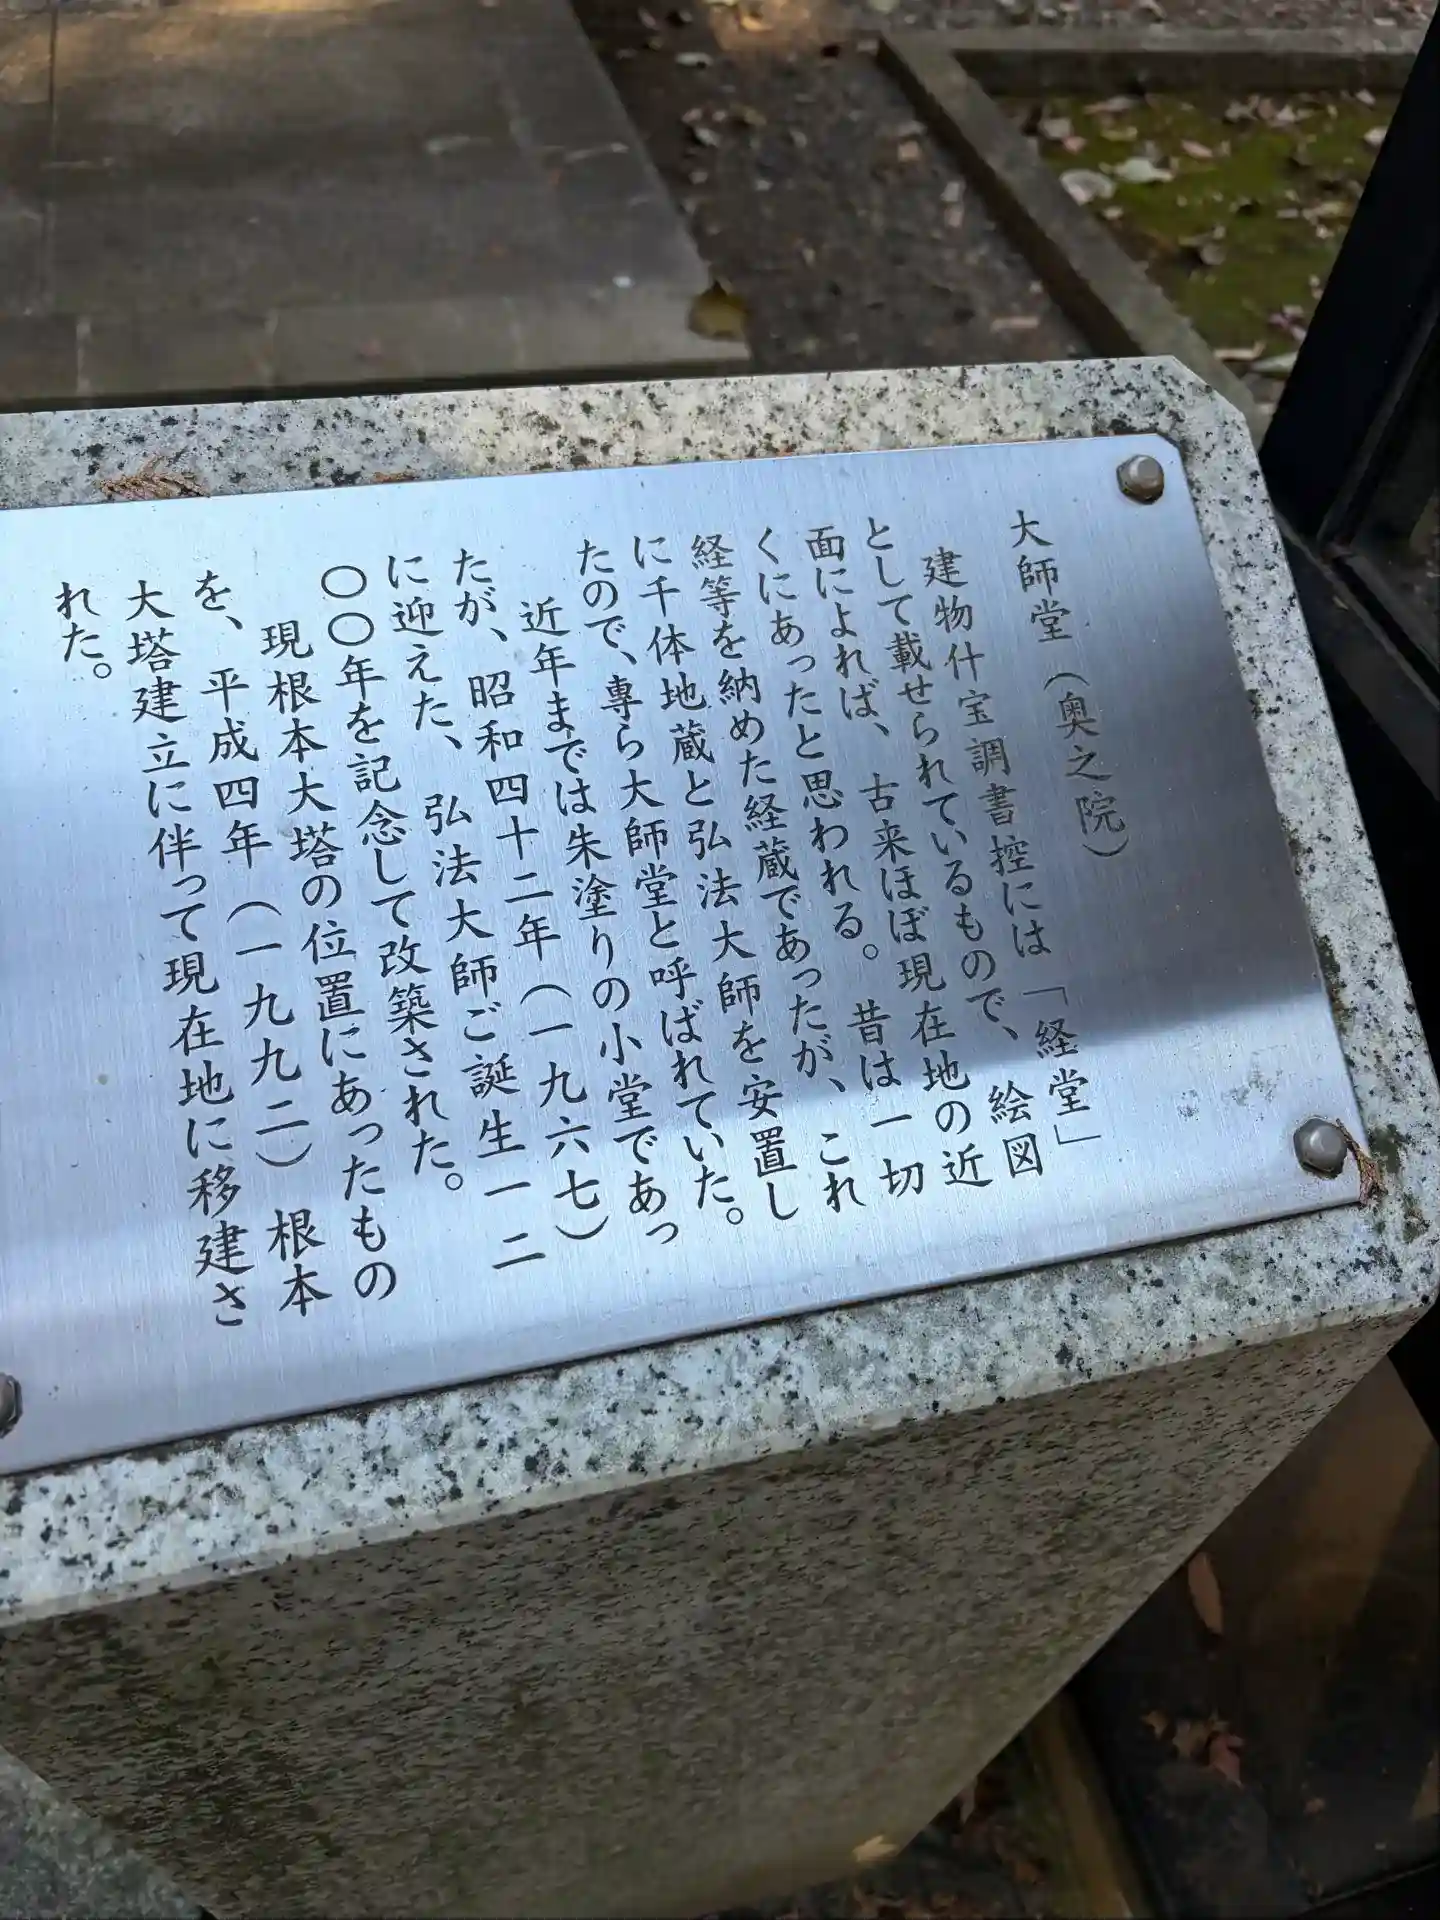 大師堂（奥之院）
建物什宝調書控には「経堂」
として載せられているもので、絵図
面によれば、古来ほぼ現在地の近
くにあったと思われる。昔は一切
経等を納めた経蔵であったが、これ
に千体地蔵と弘法大師を安置し
たので、専ら大師堂と呼ばれていた。
近年までは朱塗りの小堂であっ
たが、昭和四十二年（一九六七）
に迎えた、弘法大師ご誕生一二
〇〇年を記念して改築された。
現根本大塔の位置にあったもの
を、平成四年（一九九二）根本
大塔建立に伴って現在地に移建さ
れた。